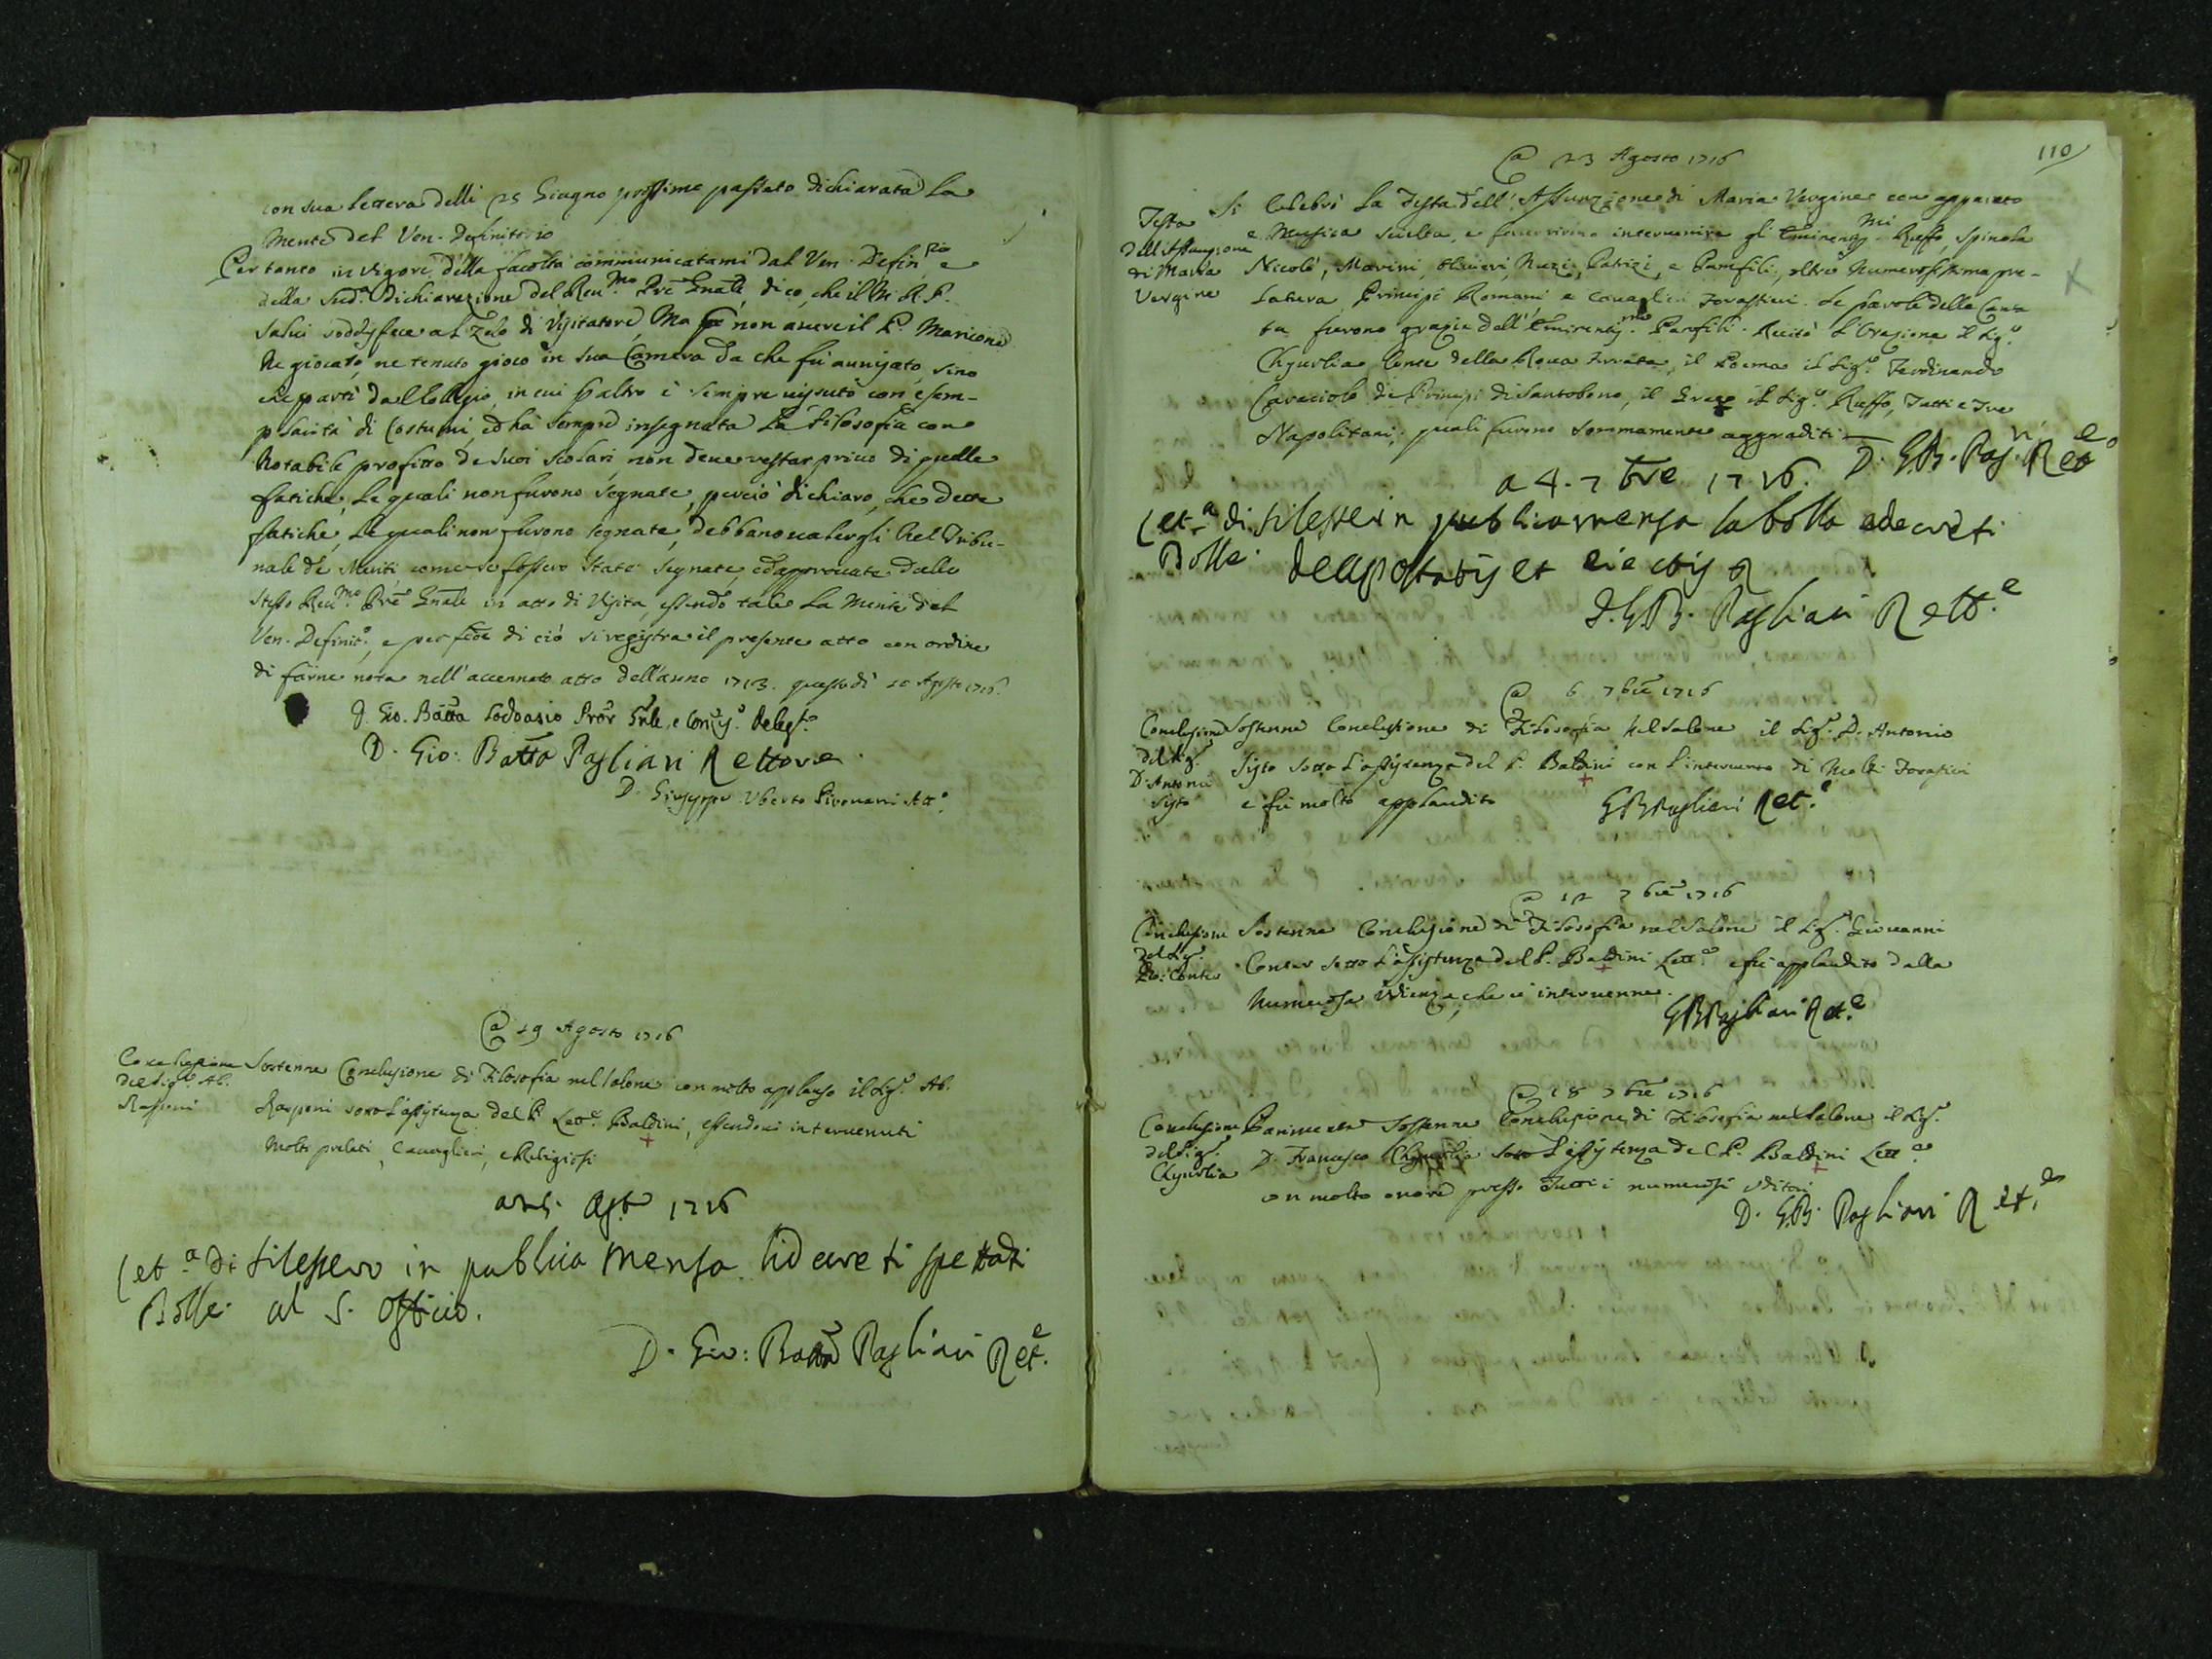 con sua lettera delli 25 Giugno prossimo passato dichiarata la
Mente del Ven. Definitorio
Per tanto in vigore della facoltà communicatami dal Ven. Defin.rio e
della sud.a dichiarazione del Reu.mo Pre Gnale, dico, che il M. R. P.
Salui soddisfece al Zelo di Visitatore, Ma non avere il P. Marione
Ne giocato, ne tenuto gioco in sua Camera da che fù auuisato, sino
che partì dal Collegio, in cui p altro è sempre vissuto con esem-
p. santità di Costumi, ed hà sempre insegnata la Filosofia con
Notabile profitto de suoi scolari non deue restar priuo di quelle
fatiche, le quali non furono segnate, perciò dichiaro, che dette
fatiche, le quali non furono segnate, debbano valergli nel Tribu-
nale de Meriti, come se fossero state segnate, ed approuate dallo
stesso Reu.mo Pre Gnale in atto di Visita, essendo tale la Mente del
Ven. Definit.o, e per fede di ciò si registra il presente atto con ordine
di farne nota nell' accennato atto dell' anno 1713. questo dì 10 Agosto 1716.
D. Gio. Batta Lodoasio Pror Gnle, e Delegt.o
D. Gio: Batta Pagliari Rettore
D. Giuseppe Uberto Att.o
@ 19 Agosto 1716
Conclusione Sostenne Conclusione di Filosofia nel salone con molto applauso il Sig.r Ab.
del Sig.r Ab. Rasponi sotto l'assistenza del P. Lett.e Baldini, essendoui interuenuti
Rasponi Molti prelati, Cauaglieri, e Religiosi
a 25. Agto 1716
Let.a di si lessero in publica mensa li decreti spettati
Bolle. al S. Officio.
D. Gio: Batta Pagliari Ret.e
110
@ 23 Agosto 1716
Festa Si celebrò la Festa dell' Assunzione di Maria Vergine con apparato
dell'Assunzione e Musica scielta, e interuenire gli Eminentiss.mi Ruffo, Spinola
di Maria Nicolò, Marini, Oliuieri, Nuzi, Patrizi, e Panfili, oltre Numerosissima pre-
Vergine latura, Principi Romani e Cauaglieri Forastieri. Le parole della Canta
ta furono grazie dell' Eminentiss.mo Panfili. Recitò l'Orazione il Sig.r
Chyurlia Conte della Roua Ferrata, il Poema il Sig.r Ferdinando
Caracciolo de Principi di Santobono, il Greco il Sig.r Ruffo, Tutti e Tre
Napolitani, quali furono sommamente aggraditi
D. G.B. Pag.ri Ret.e
a 4. 7bre 1716.
Let.a di Si lesse in publica mensa la bolla e decreti
Bolle. de Apostatis et eiectis
D. G.B. Pagliari Rett.e
@ 6 7bre 1716
Conclusione Sostenne Conclusione di Filosofia nel salone il Sig.r D. Antonio
del Sig.r Sisto sotto l'assistenza del P. Baldini con l'interuento di Molti Forastieri
D. Antonio Sisto e fù molto applaudito
GBPagliari Ret.e
@ 12 7bre 1716
Conclusione Sostenne Conclusione di Filosofia nel salone il Sig.r Giouanni
del Sig.r Conter sotto l'assistenza del P. Baldini Lett.e e fù applaudito dalla
Gio: Conter Numerosa Vdienza, che ui interuenne.
GBPagliari Ret.e
@ 18 7bre 1716
Conclusione Parimente Sostenne Conclusione di Filosofia nel salone il Sig.r
del Sig.r D. Francesco Chyurlia sotto l'assistenza del P. Baldini Lett.e
Chyurlia con molto onore presso Tutti i numerosi Vditori
D. G.B. Pagliari Ret.e